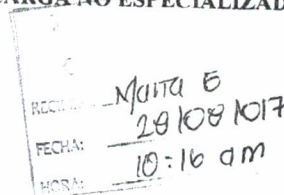 CARGA NO ESPECIALIZAD
Marta E
FECHA: 28/08/017
HORA: 10:16 am